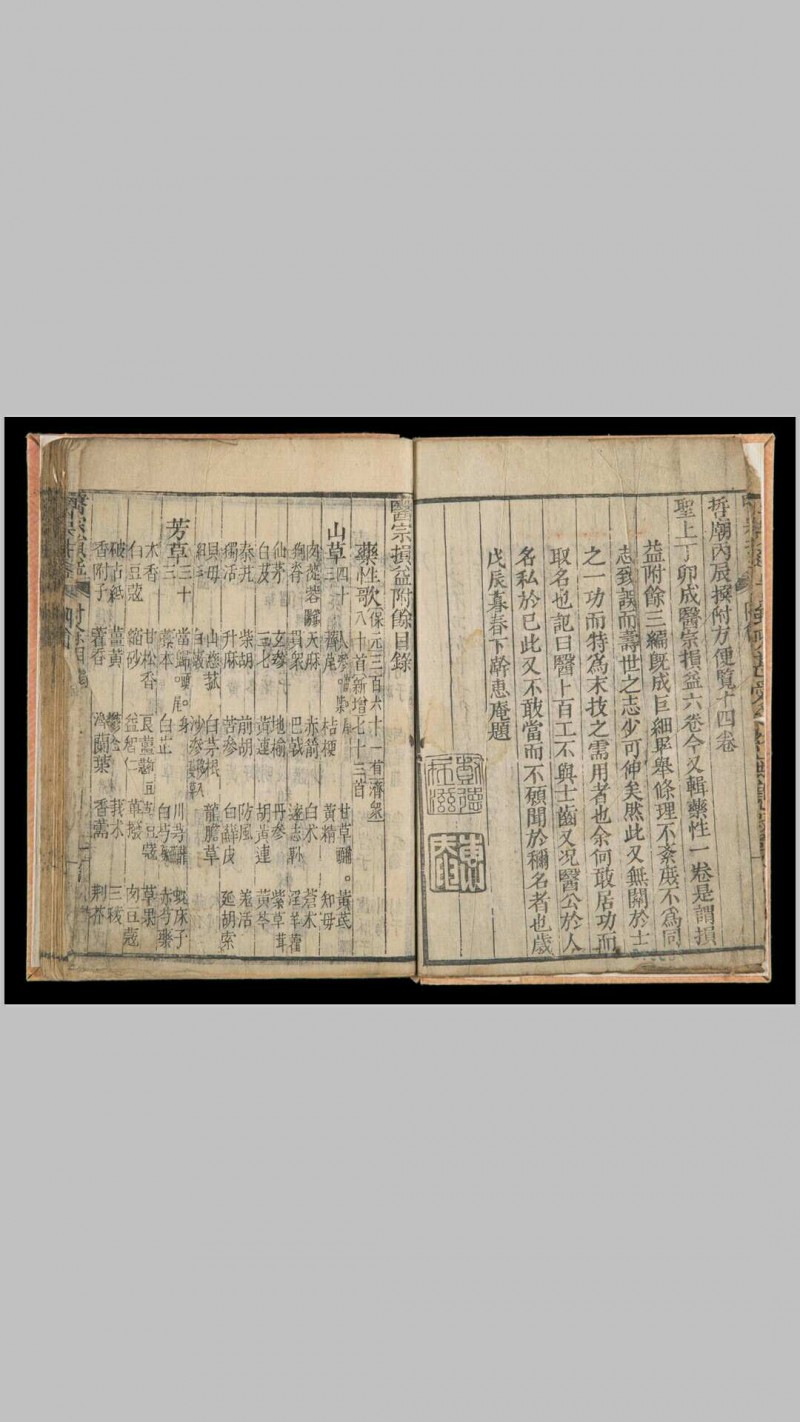 哲廟丙辰撰附方便覽十四卷
聖上丁卯成醫宗損益六卷今又輯藥性一卷是謂損
益附餘三編旣成巨細畢舉條理不紊庶不為同
志致誤而壽世之志少可伸矣然此又無關於士
之一功而特為末技之需用者也余何敢居功而
取名也記曰醫卜百工不與士齒又况醫公於人
名私於己此又不敢當而不願聞於稱名者也歲
戊辰暮春下澣惠庵題
醫宗損益附餘目錄
藥性歌 保元三百六十一首濟衆八十首新增七十三首
山草 四十三 人參 甘草 黃芪
薺尼 桔梗 黃精 知母
肉蓯蓉 天麻 赤箭 白朮 蒼朮
狗脊 貫衆 巴戟 遠志 淫羊藿
仙茅 玄參 地榆 丹參 紫草茸
白及 三七 黃連 胡黃連 黃芩
秦艽 柴胡 前胡 防風 羌活
獨活 升麻 苦參 白蘚皮 延胡索
貝母 山慈菰 白茅根 龍膽草
細辛 白薇 沙參
芳草 三十三 當歸 川芎 蛇床子
藁本 白芷 白芍藥 赤芍藥
木香 甘松香 良薑 草果
白豆蔻 縮砂 益智仁 蓽撥 肉豆蔻
破古紙 薑黃 鬱金 莪朮 三稜
香附子 藿香 澤蘭葉 香薷 荆芥